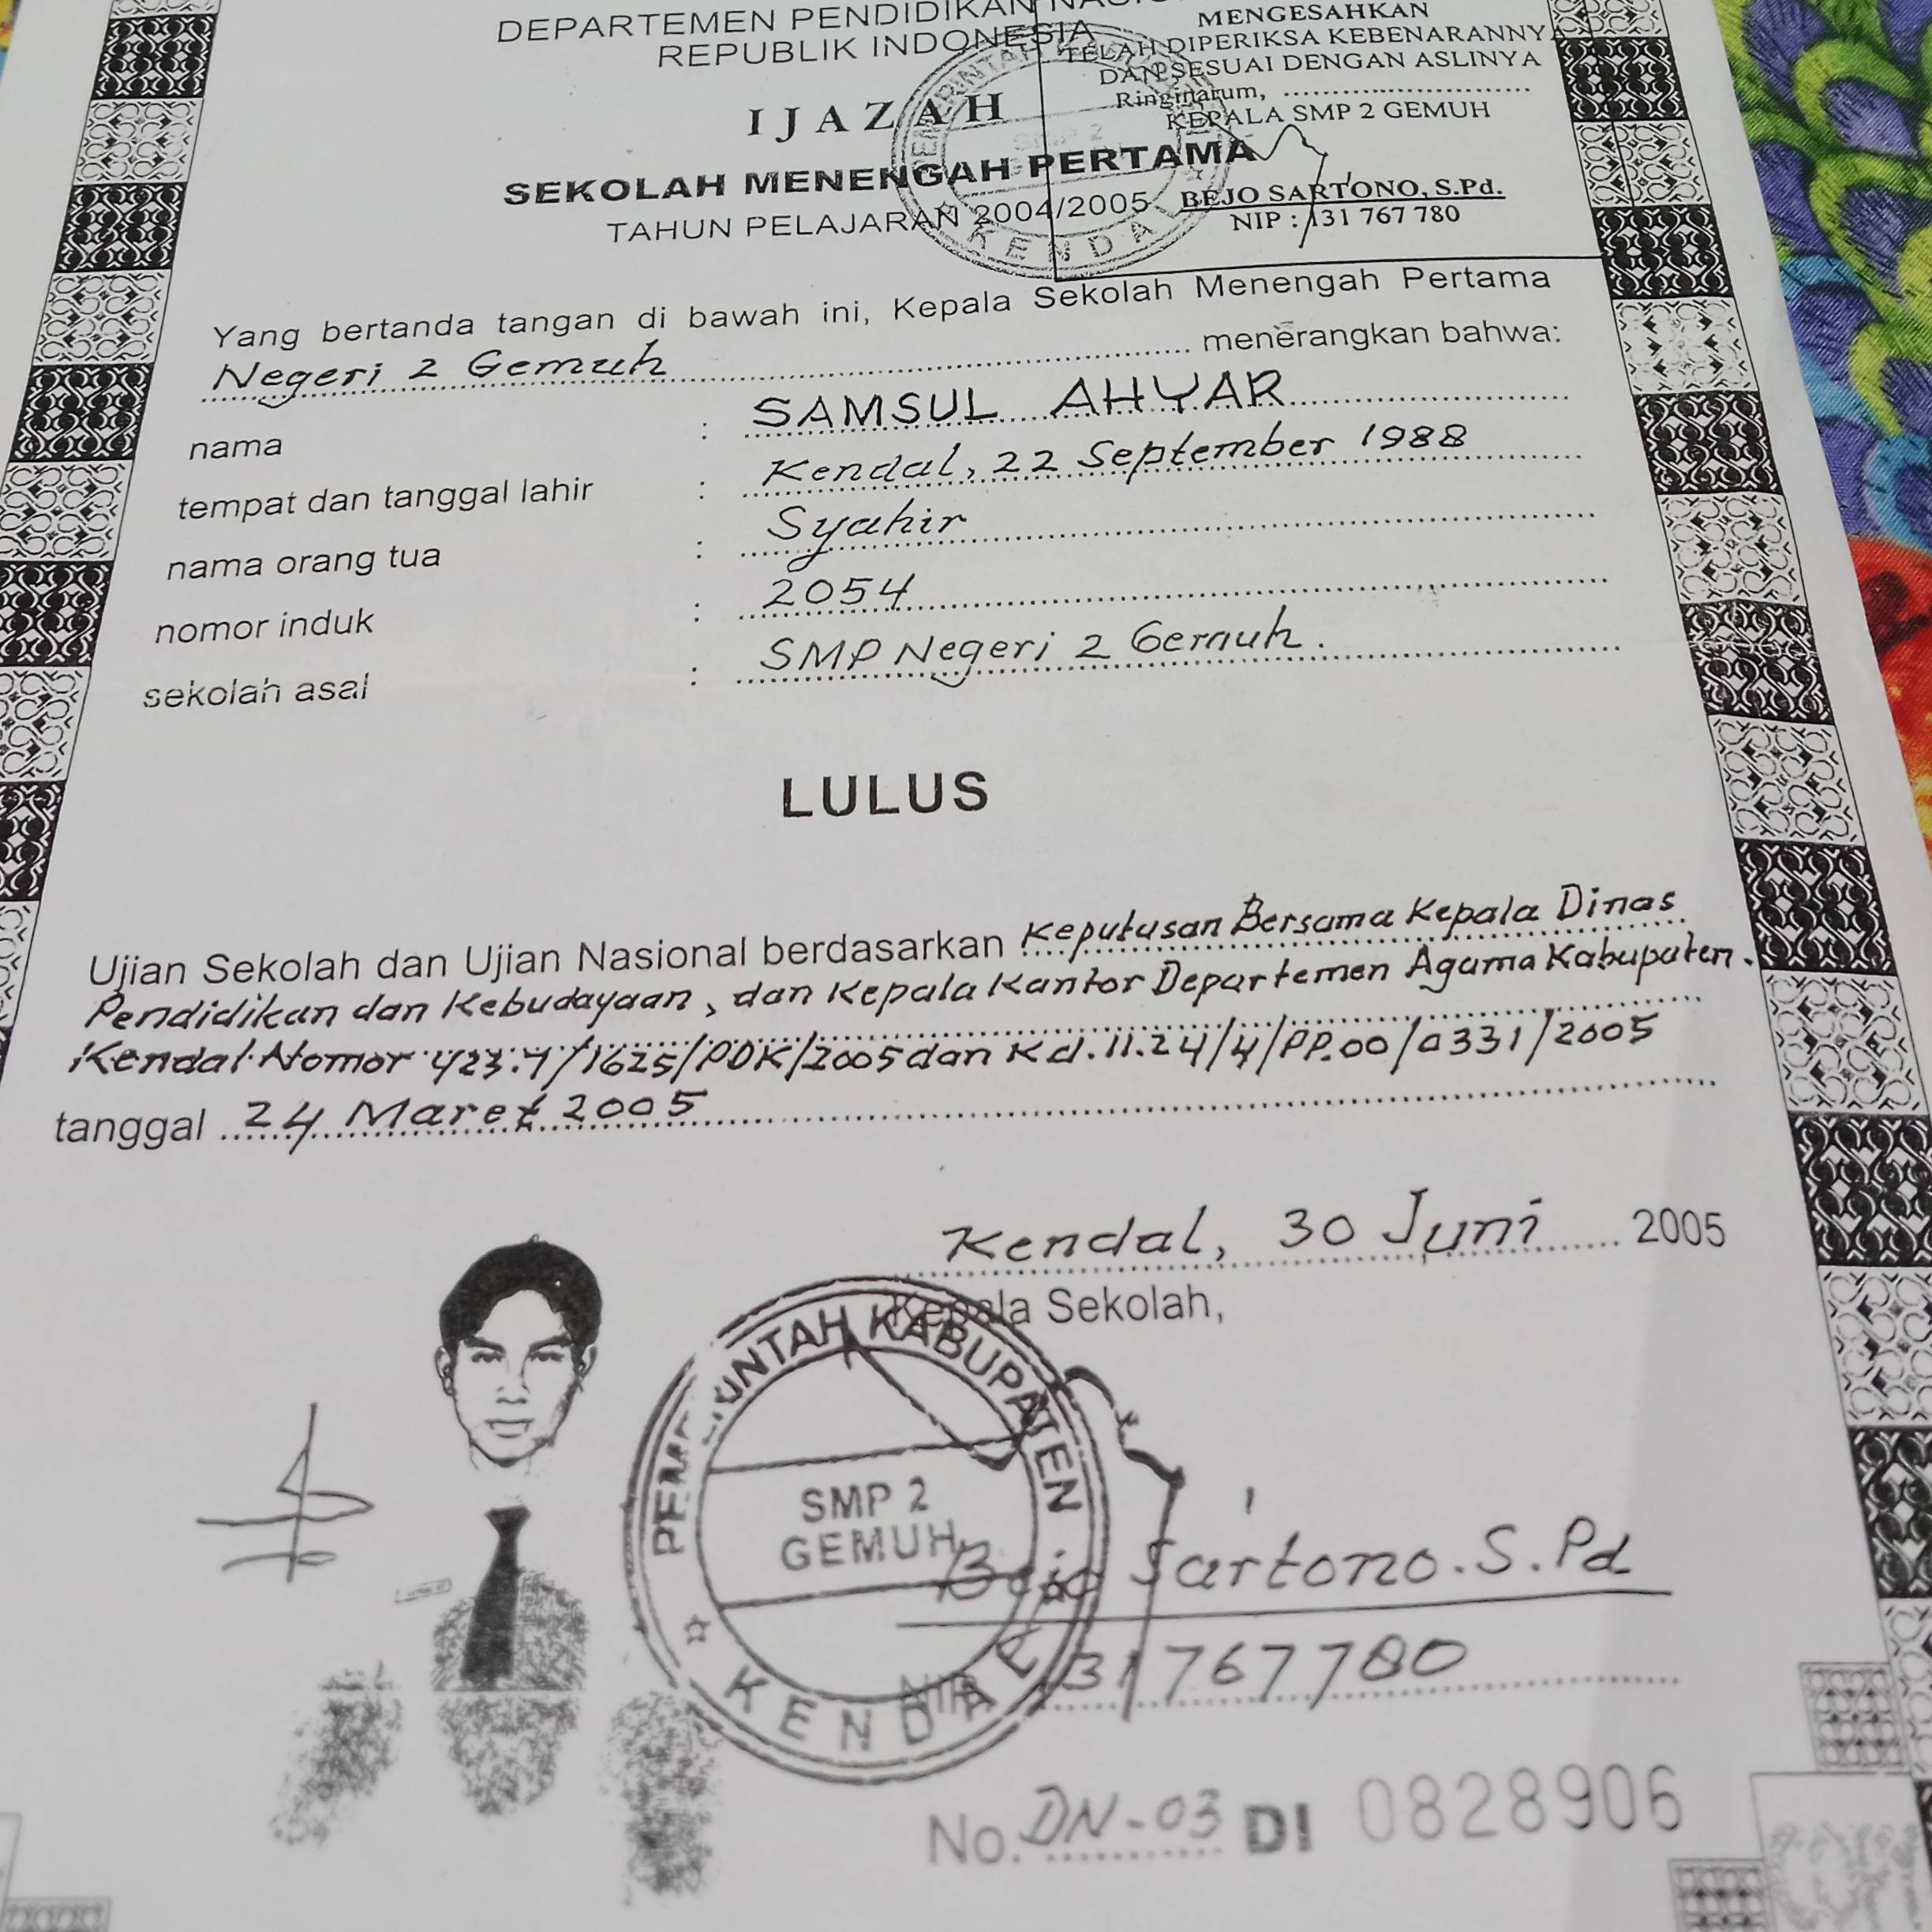 DEPARTEMEN PENDIDIKAN
REPUBLIK INDONESIA
MENGESAHKAN
TELAH DIPERIKSA KEBENARANNYA
DAN SESUAI DENGAN ASLINYA
Ringinarum, ..............................
KEPALA SMP 2 GEMUH
BEJO SARTONO, S.Pd.
NIP : 131 767 780
IJAZAH
SEKOLAH MENENGAH PERTAMA
TAHUN PELAJARAN 2004/2005
KENDAL
Yang bertanda tangan di bawah ini, Kepala Sekolah Menengah Pertama
Negeri 2 Gemuh menerangkan bahwa:
nama : SAMSUL AHYAR
tempat dan tanggal lahir : Kendal, 22 September 1988
nama orang tua : Syahir
nomor induk : 2054
sekolah asal : SMP Negeri 2 Gemuh.
LULUS
Ujian Sekolah dan Ujian Nasional berdasarkan Keputusan Bersama Kepala Dinas
Pendidikan dan Kebudayaan, dan Kepala Kantor Departemen Agama Kabupaten.
Kendal Nomor 423.7/1625/PDK/2005 dan Kd.11.24/4/PP.00/0331/2005
tanggal 24 Maret 2005
Kendal, 30 Juni 2005
Kepala Sekolah,
PEMERINTAH KABUPATEN
SMP 2
GEMUH
KENDAL
Bejo Sartono.S.Pd
NIP. 131767780
No. DN-03 DI 0828906